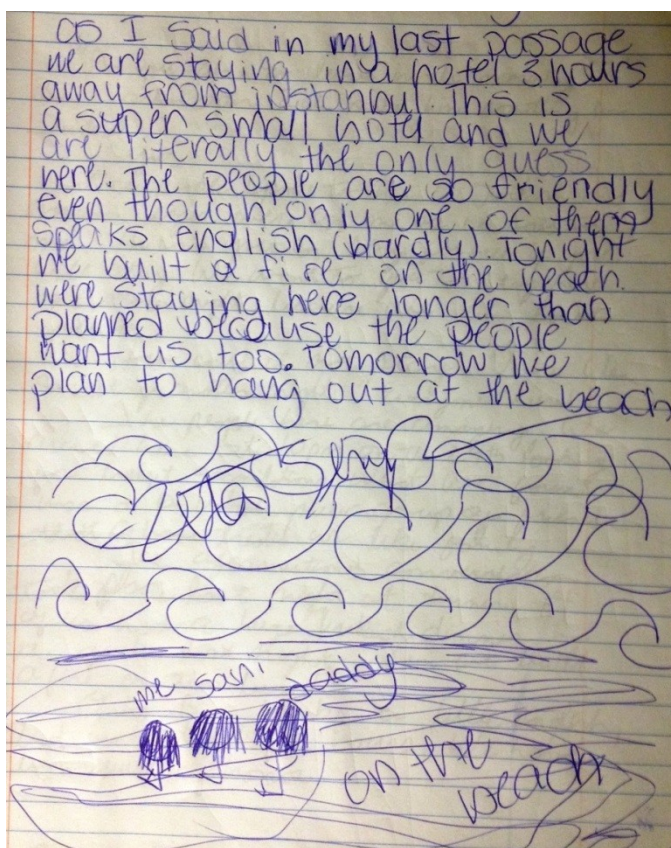 as I said in my last passage
we are staying in a hotel 3 hours
away from instanbul. This is
a super small hotel and we
are literally the only guess
here. The people are so friendly
even though only one of them
speaks english (bardly). Tonight
we built a fire on the beach.
were staying here longer than
planned because the people
want us too. Tomorrow we
plan to hang out at the beach
me sani daddy
on the
beach